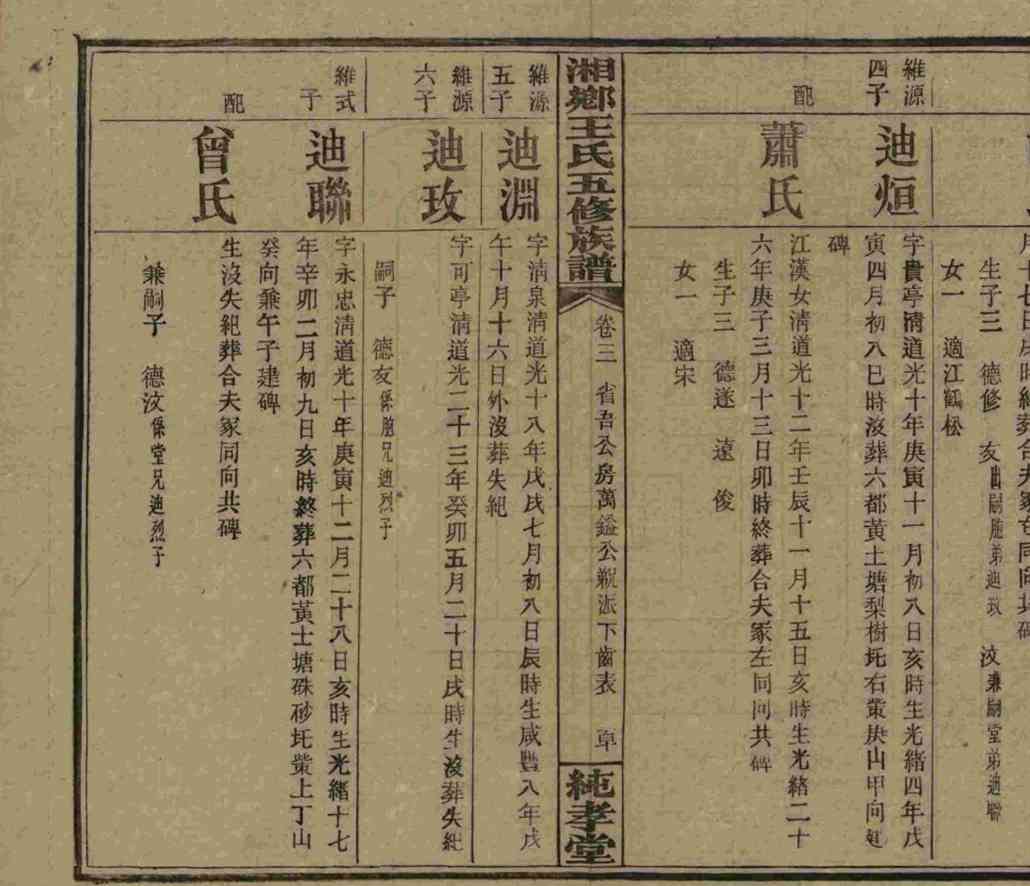 月十七日戌時終葬合夫冢同向共碑
生子三 德修 友出嗣胞弟迪玫 汶兼嗣堂弟迪聯
女一 適江鶴松
維源四子
迪烜
字貴亭清道光十年庚寅十一月初八日亥時生光緒四年戊
寅四月初八巳時沒葬六都黃土塘梨樹坵右棠庚山甲向建
碑
配
蕭氏
江漢女清道光十二年壬辰十一月十五日亥時生光緒二十
六年庚子三月十三日卯時終葬合夫冢左同向共碑
生子三 德遂 遠 俊
女一 適宋
湘鄉王氏五修族譜
卷三 省吾公房萬鎰公觀派下齒表 草
純孝堂
維源五子
迪淵
字清泉清道光十八年戊戌七月初八日辰時生咸豐八年戊
午十月十六日外沒葬失紀
維源六子
迪玫
字可亭清道光二十三年癸卯五月二十日戌時生沒葬失紀
嗣子 德友係胞兄迪烈子
維式子
迪聯
字永忠清道光十年庚寅十二月二十八日亥時生光緒十七
年辛卯二月初九日亥時終葬六都黃土塘硃砂坵棠上丁山
癸向兼午子建碑
配
曾氏
生沒失紀葬合夫冢同向共碑
兼嗣子 德汶係堂兄迪烈子